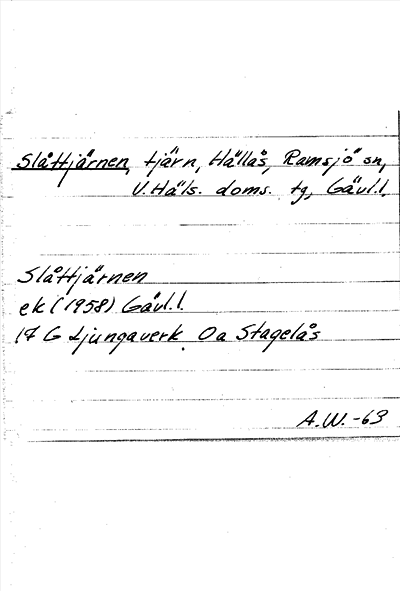 Slåttjärnen, tjärn, Hällås, Ramsjö sn,
V.Häls. doms. tg, Gävl.l.
Slåttjärnen
ek (1958) Gävl.l.
17 G Ljungaverk Oa Stagelås
A.W.-63